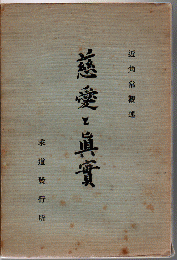 近角常觀述
慈愛と眞實
求道發行所